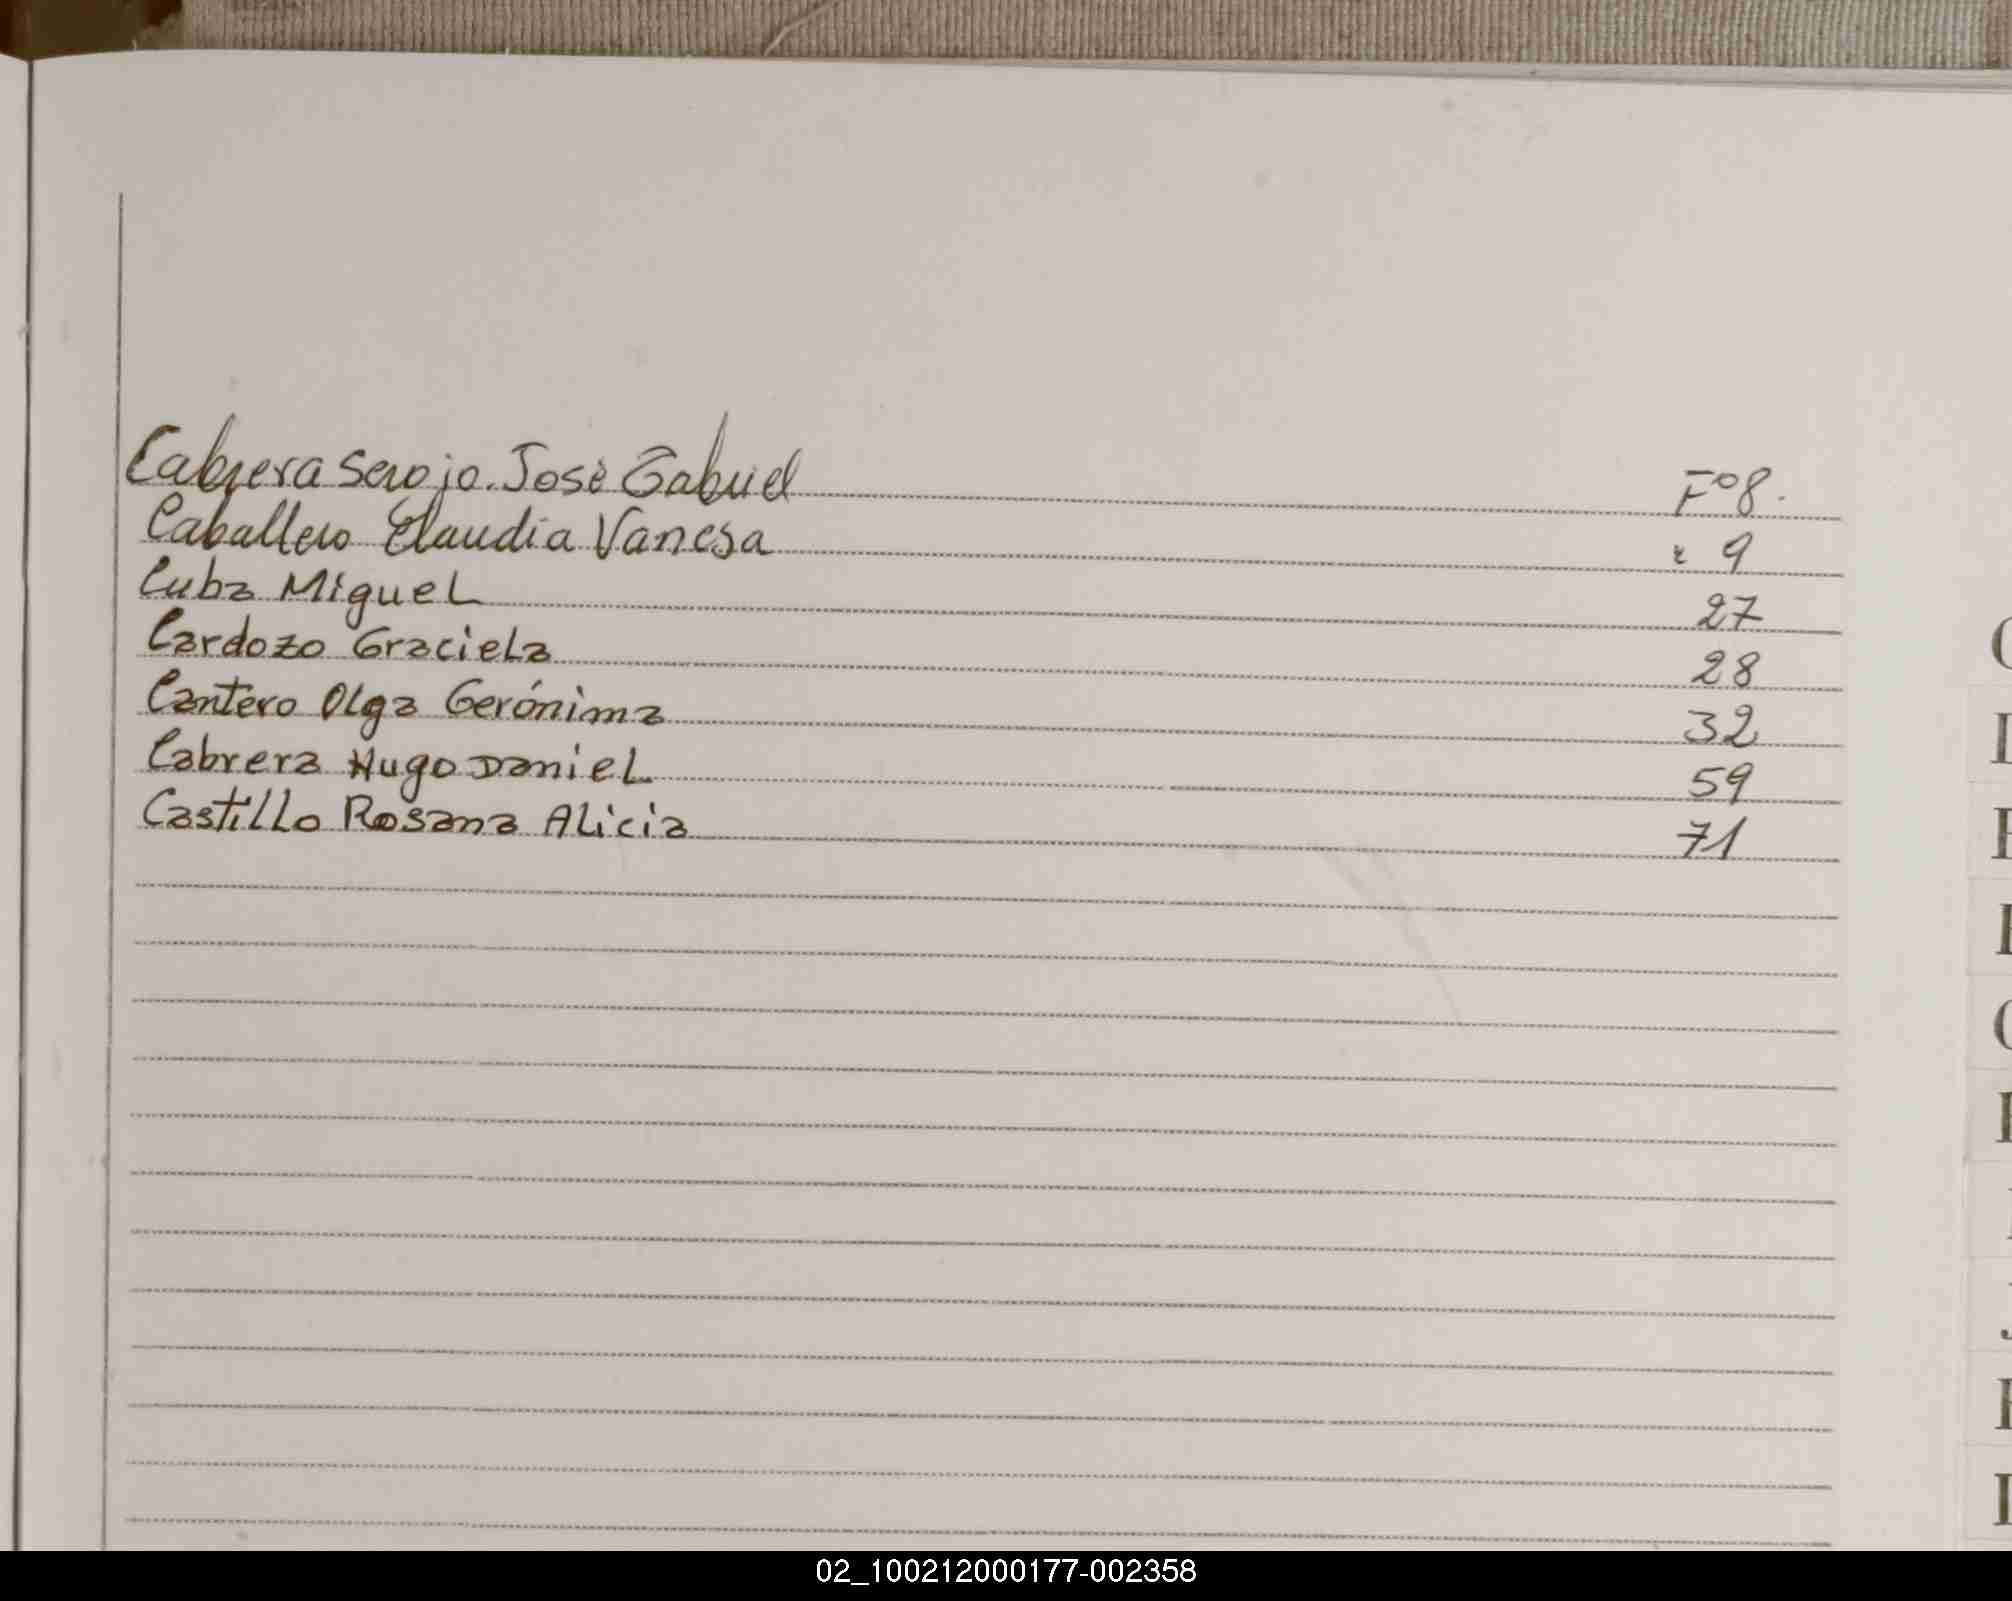 Cabrera Sergio José Gabriel F° 8.
Caballero Claudia Vanesa " 9
Cuba Miguel 27
Cardozo Graciela 28
Cantero Olga Gerónima 32
Cabrera Hugo Daniel 59
Castillo Rosana Alicia 71
02_100212000177-002358